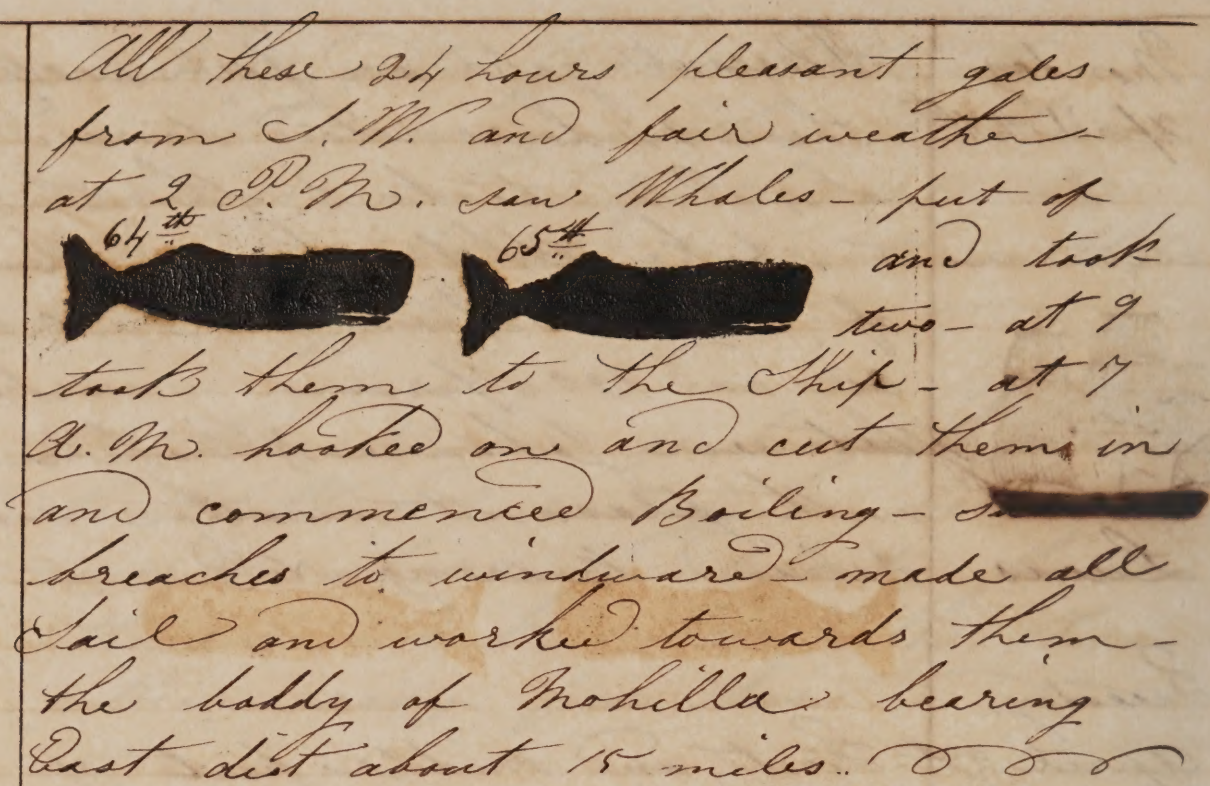 All these 24 hours pleasant gales
from S. W. and fair weather
at 2 P. M. saw Whales - put of
64th 65th and took
two - at 9
took them to the Ship - at 7
A. M. hooked on and cut them in
and commenced Boiling -
breaches to windward - made all
Sail and worked towards them -
the boddy of Mohilla bearing
East dist about 15 miles..